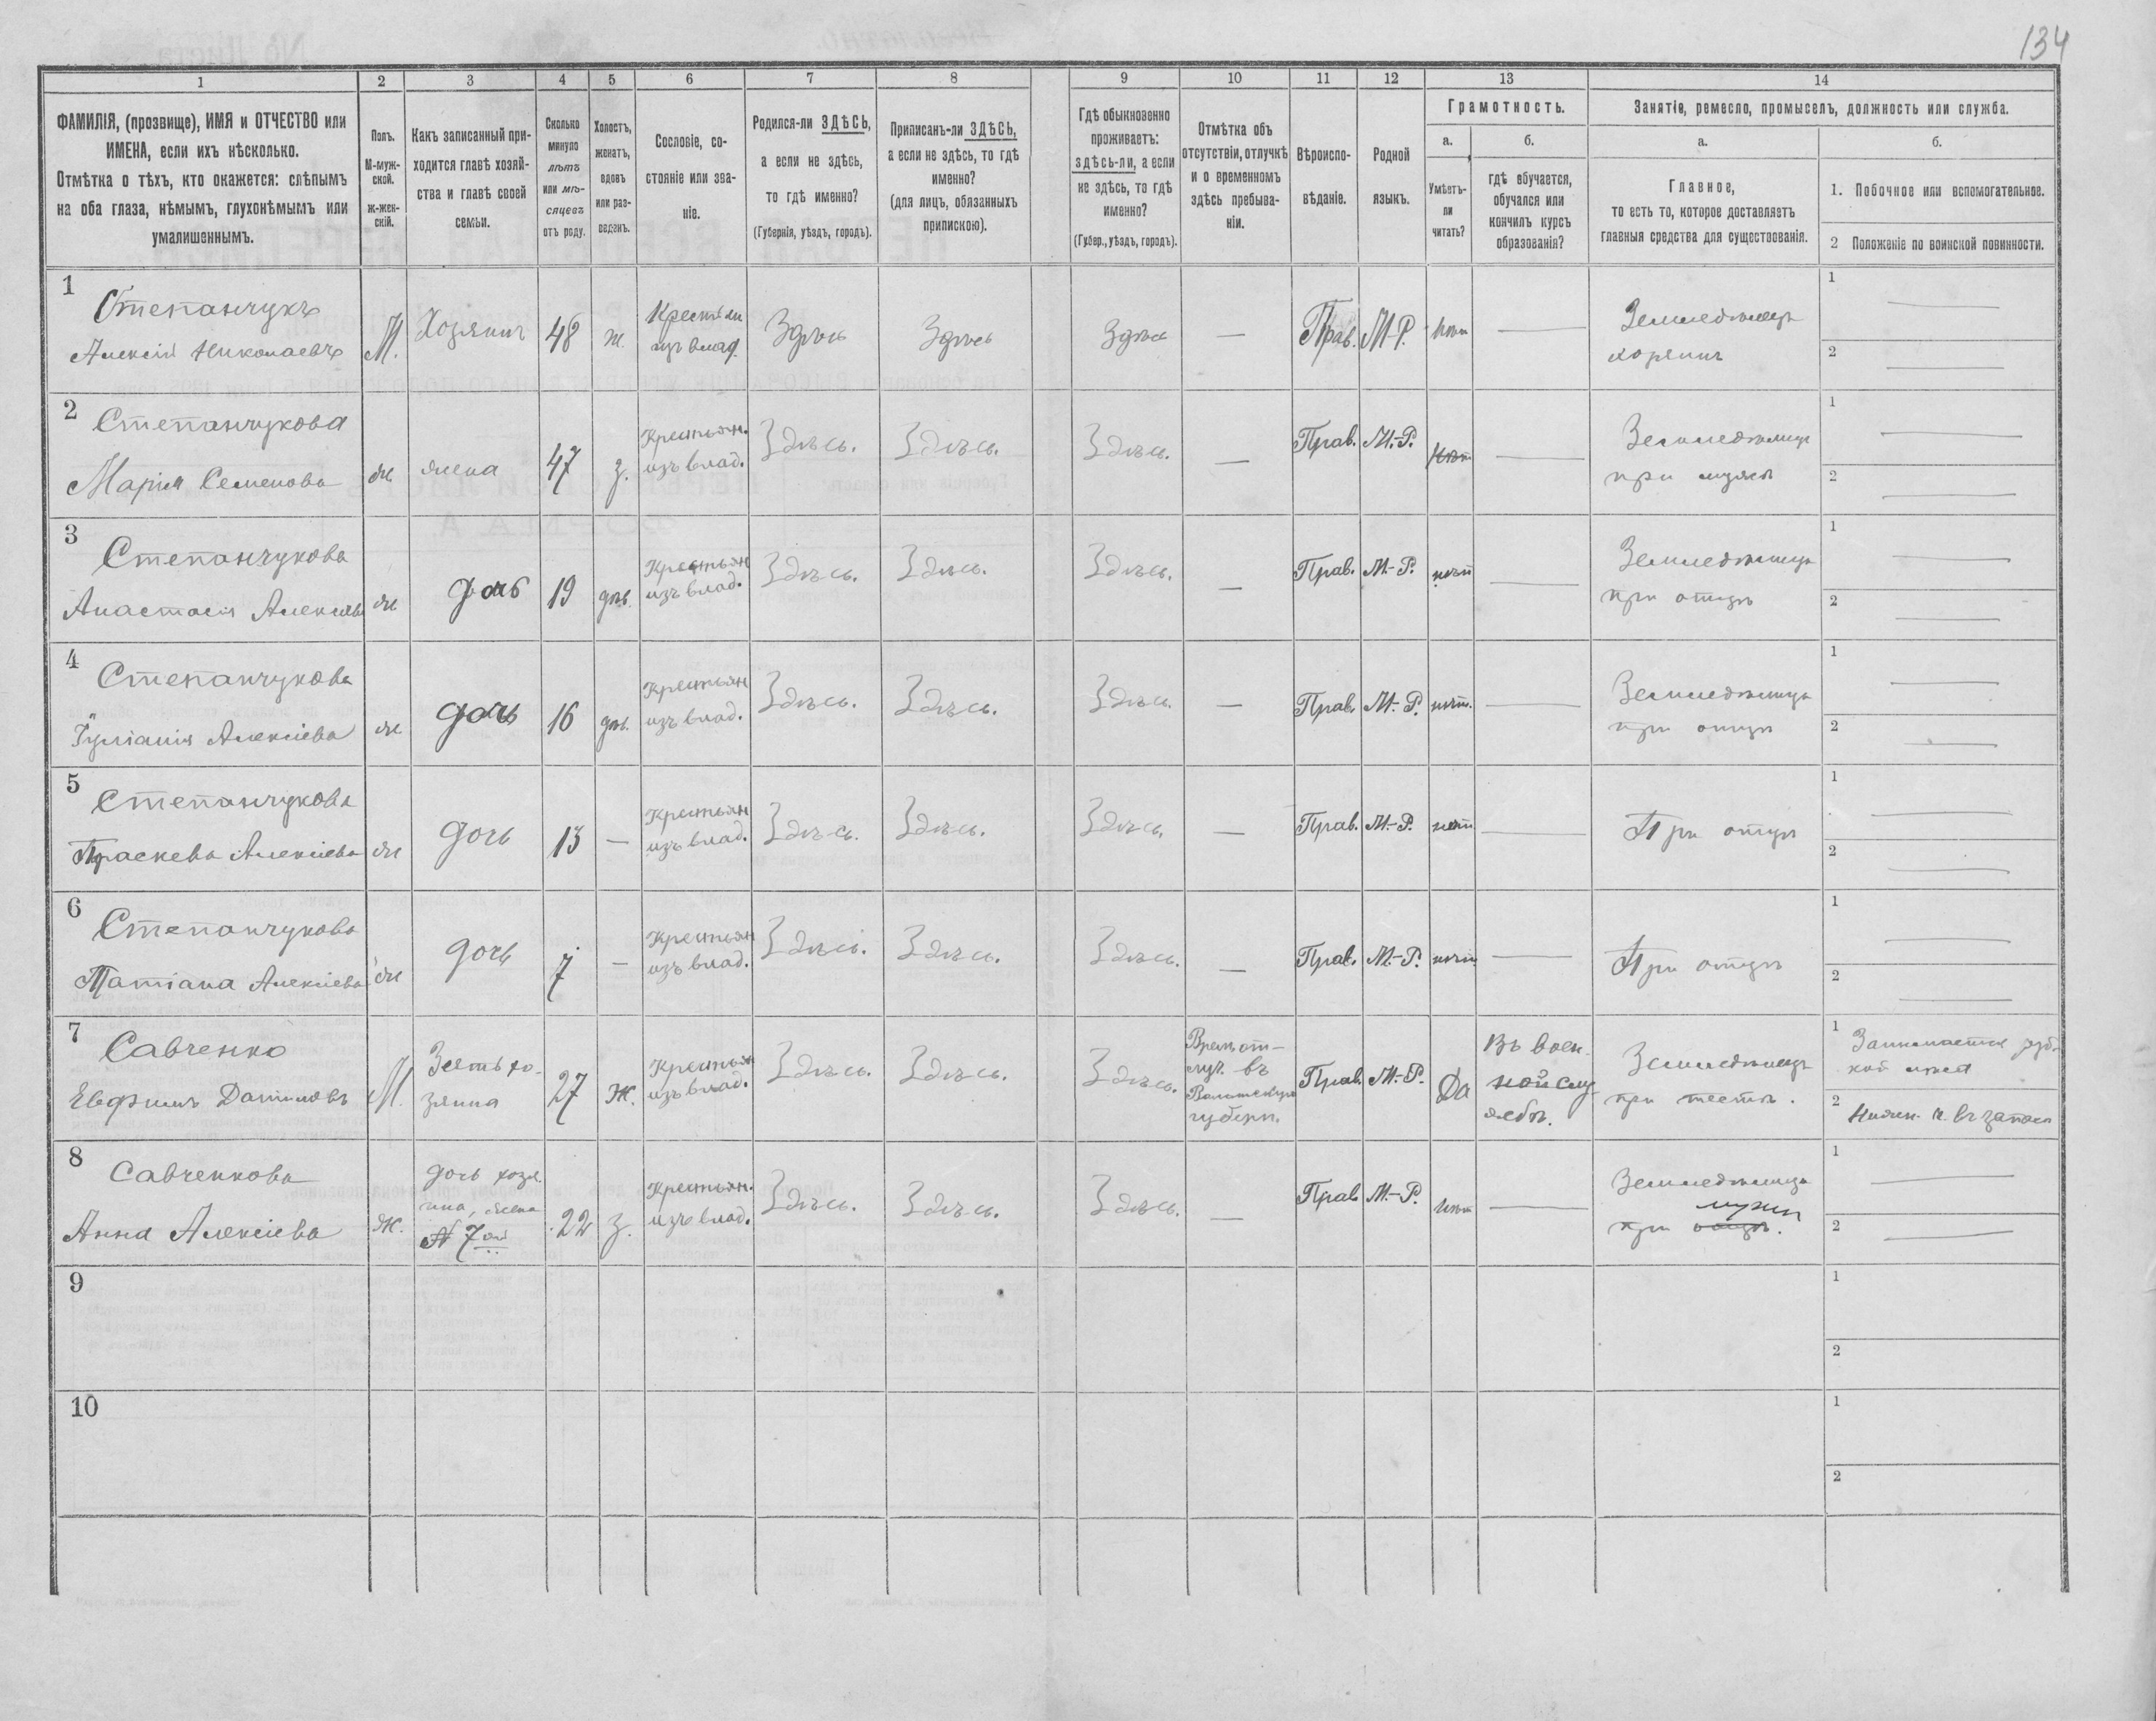 134
1 2 3 4 5 6 7 8 9 10 11 12 13 14
ФАМИЛІЯ, (прозвище), ИМЯ и ОТЧЕСТВО или
ИМЕНА, если ихъ нѣсколько.
Отмѣтка о тѣхъ, кто окажется: слѣпымъ
на оба глаза, нѣмымъ, глухонѣмымъ или
умалишеннымъ.
Полъ.
М-муж-
ской.
ж-жен-
скій.
Какъ записанный при-
ходится главѣ хозяй-
ства и главѣ своей
семьи.
Сколько
минуло
лѣтъ
или мѣ-
сяцевъ
отъ роду.
Холостъ,
женатъ,
вдовъ
или раз-
веденъ.
Сословіе, со-
стояніе или зва-
ніе.
Родился-ли ЗДѢСЬ,
а если не здѣсь,
то гдѣ именно?
(Губернія, уѣздъ, городъ).
Приписанъ-ли ЗДѢСЬ,
а если не здѣсь, то гдѣ
именно?
(для лицъ, обязанныхъ
припискою).
Гдѣ обыкновенно
проживаетъ:
здѣсь-ли, а если
не здѣсь, то гдѣ
именно?
(Губер., уѣздъ, городъ).
Отмѣтка объ
отсутствіи, отлучкѣ
и о временномъ
здѣсь пребыва-
ніи.
Вѣроиспо-
вѣданіе.
Родной
языкъ.
Грамотность.
а.
Умѣетъ-
ли
читать?
б.
гдѣ обучается,
обучался или
кончилъ курсъ
образованія?
Занятіе, ремесло, промыселъ, должность или служба.
а.
Главное,
то есть то, которое доставляетъ
главныя средства для существованія.
б.
1. Побочное или вспомогательное.
2 Положеніе по воинской повинности.
1
Степанчукъ
Алексій Николаевъ
М.
Хозяинъ
48
ж.
Крестьян
изъ влад.
Здѣсь
Здѣсь
Здѣсь
—
Прав.
М.-Р.
нѣт
—
Земледѣлецъ
хозяинъ
1 —
2 —
2
Степанчукова
Марія Семенова
ж.
жена
47
з.
Крестьян.
изъ влад.
Здѣсь.
Здѣсь.
Здѣсь.
—
Прав.
М.-Р.
нѣт
—
Земледѣлица
при мужѣ
1 —
2 —
3
Степанчукова
Анастасія Алексіева
ж
дочь
19
дѣв.
Крестьян
изъ влад.
Здѣсь.
Здѣсь.
Здѣсь.
—
Прав.
М.-Р.
нѣт
—
Земледѣлица
при отцѣ
1 —
2 —
4
Степанчукова
Іуліанія Алексіева
ж
дочь
16
дѣв.
Крестьян
изъ влад.
Здѣсь.
Здѣсь.
Здѣсь.
—
Прав.
М.-Р.
нѣт.
—
Земледѣлица
при отцѣ
1 —
2 —
5
Степанчукова
Праскева Алексіева
ж
дочь
13
—
Крестьян
изъ влад.
Здѣсь.
Здѣсь.
Здѣсь.
—
Прав.
М.-Р.
нѣт
—
При отцѣ
1 —
2 —
6
Степанчукова
Татіана Алексіева
ж
дочь
7
—
Крестьян
изъ влад.
Здѣсь.
Здѣсь.
Здѣсь.
—
Прав.
М.-Р.
нѣт
—
При отцѣ
1 —
2 —
7
Савченко
Евфимъ Даниловъ
М.
Зять хо-
зяина
27
Ж.
Крестьян
изъ влад.
Здѣсь.
Здѣсь.
Здѣсь.
Врем. от-
луч. въ
губерн.
Прав.
М.-Р.
Да
Въ воен-
ной слу-
жбѣ.
Земледѣлецъ
при тестѣ.
1 Занимается руб-
кой
2 Нижн. ч. въ запасѣ
8
Савченкова
Анна Алексіева
Ж.
дочь хозя-
ина, жена
№ 7ой
22
з.
Крестьян.
изъ влад.
Здѣсь.
Здѣсь.
Здѣсь.
—
Прав
М.-Р.
нѣт
—
Земледѣлица
мужѣ
при отцѣ.
1 —
2 —
9
1
2
10
1
2